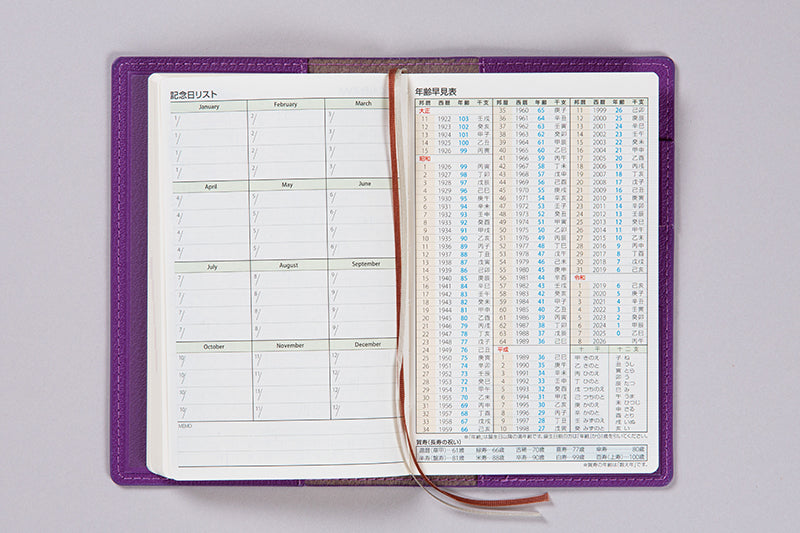 記念日リスト
January February March
1/ 2/ 3/
1/ 2/ 3/
1/ 2/ 3/
1/ 2/ 3/
April May June
4/ 5/ 6/
4/ 5/ 6/
4/ 5/ 6/
4/ 5/ 6/
July August September
7/ 8/ 9/
7/ 8/ 9/
7/ 8/ 9/
7/ 8/ 9/
October November December
10/ 11/ 12/
10/ 11/ 12/
10/ 11/ 12/
10/ 11/ 12/
MEMO
年齢早見表
邦暦 西暦 年齢 干支
大正
11 1922 103 壬戌
12 1923 102 癸亥
13 1924 101 甲子
14 1925 100 乙丑
15 1926 99 丙寅
昭和
1 1926 99 丙寅
2 1927 98 丁卯
3 1928 97 戊辰
4 1929 96 己巳
5 1930 95 庚午
6 1931 94 辛未
7 1932 93 壬申
8 1933 92 癸酉
9 1934 91 甲戌
10 1935 90 乙亥
11 1936 89 丙子
12 1937 88 丁丑
13 1938 87 戊寅
14 1939 86 己卯
15 1940 85 庚辰
16 1941 84 辛巳
17 1942 83 壬午
18 1943 82 癸未
19 1944 81 甲申
20 1945 80 乙酉
21 1946 79 丙戌
22 1947 78 丁亥
23 1948 77 戊子
24 1949 76 己丑
25 1950 75 庚寅
26 1951 74 辛卯
27 1952 73 壬辰
28 1953 72 癸巳
29 1954 71 甲午
30 1955 70 乙未
31 1956 69 丙申
32 1957 68 丁酉
33 1958 67 戊戌
34 1959 66 己亥
邦暦 西暦 年齢 干支
35 1960 65 庚子
36 1961 64 辛丑
37 1962 63 壬寅
38 1963 62 癸卯
39 1964 61 甲辰
40 1965 60 乙巳
41 1966 59 丙午
42 1967 58 丁未
43 1968 57 戊申
44 1969 56 己酉
45 1970 55 庚戌
46 1971 54 辛亥
47 1972 53 壬子
48 1973 52 癸丑
49 1974 51 甲寅
50 1975 50 乙卯
51 1976 49 丙辰
52 1977 48 丁巳
53 1978 47 戊午
54 1979 46 己未
55 1980 45 庚申
56 1981 44 辛酉
57 1982 43 壬戌
58 1983 42 癸亥
59 1984 41 甲子
60 1985 40 乙丑
61 1986 39 丙寅
62 1987 38 丁卯
63 1988 37 戊辰
64 1989 36 己巳
平成
1 1989 36 己巳
2 1990 35 庚午
3 1991 34 辛未
4 1992 33 壬申
5 1993 32 癸酉
6 1994 31 甲戌
7 1995 30 乙亥
8 1996 29 丙子
9 1997 28 丁丑
10 1998 27 戊寅
邦暦 西暦 年齢 干支
11 1999 26 己卯
12 2000 25 庚辰
13 2001 24 辛巳
14 2002 23 壬午
15 2003 22 癸未
16 2004 21 甲申
17 2005 20 乙酉
18 2006 19 丙戌
19 2007 18 丁亥
20 2008 17 戊子
21 2009 16 己丑
22 2010 15 庚寅
23 2011 14 辛卯
24 2012 13 壬辰
25 2013 12 癸巳
26 2014 11 甲午
27 2015 10 乙未
28 2016 9 丙申
29 2017 8 丁酉
30 2018 7 戊戌
31 2019 6 己亥
令和
1 2019 6 己亥
2 2020 5 庚子
3 2021 4 辛丑
4 2022 3 壬寅
5 2023 2 癸卯
6 2024 1 甲辰
7 2025 0 乙巳
8 2026
十干
甲 きのえ
乙 きのと
丙 ひのえ
丁 ひのと
戊 つちのえ
己 つちのと
庚 かのえ
辛 かのと
壬 みずのえ
癸 みずのと
十二支
子 ね
丑 うし
寅 とら
卯 う
辰 たつ
巳 み
午 うま
未 ひつじ
申 さる
酉 とり
戌 いぬ
亥 い
※「年齢」は誕生日以降の満年齢です。誕生日前の方は「年齢」から1歳を引いてください。
賀寿(長寿の祝い)
還暦(華甲)…61歳 緑寿…66歳 古稀…70歳 喜寿…77歳 傘寿…80歳
半寿(盤寿)…81歳 米寿…88歳 卒寿…90歳 白寿…99歳 百寿(上寿)…100歳
※賀寿の年齢は「数え年」です。